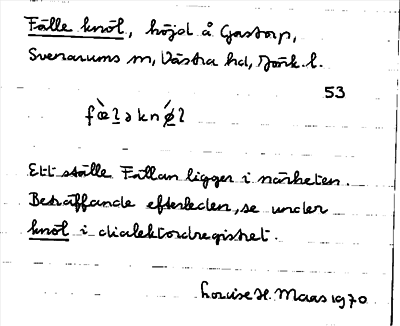 Fälle knöl, höjd å Gastorp,
Svenarums sn, Västra hd, Jönk. l.
53
fæ̀lǝknǿl
Ett ställe Fällan ligger i närheten.
Beträffande efterleden, se under
knöl i dialektordregistret.
Louise H. Maas 1970